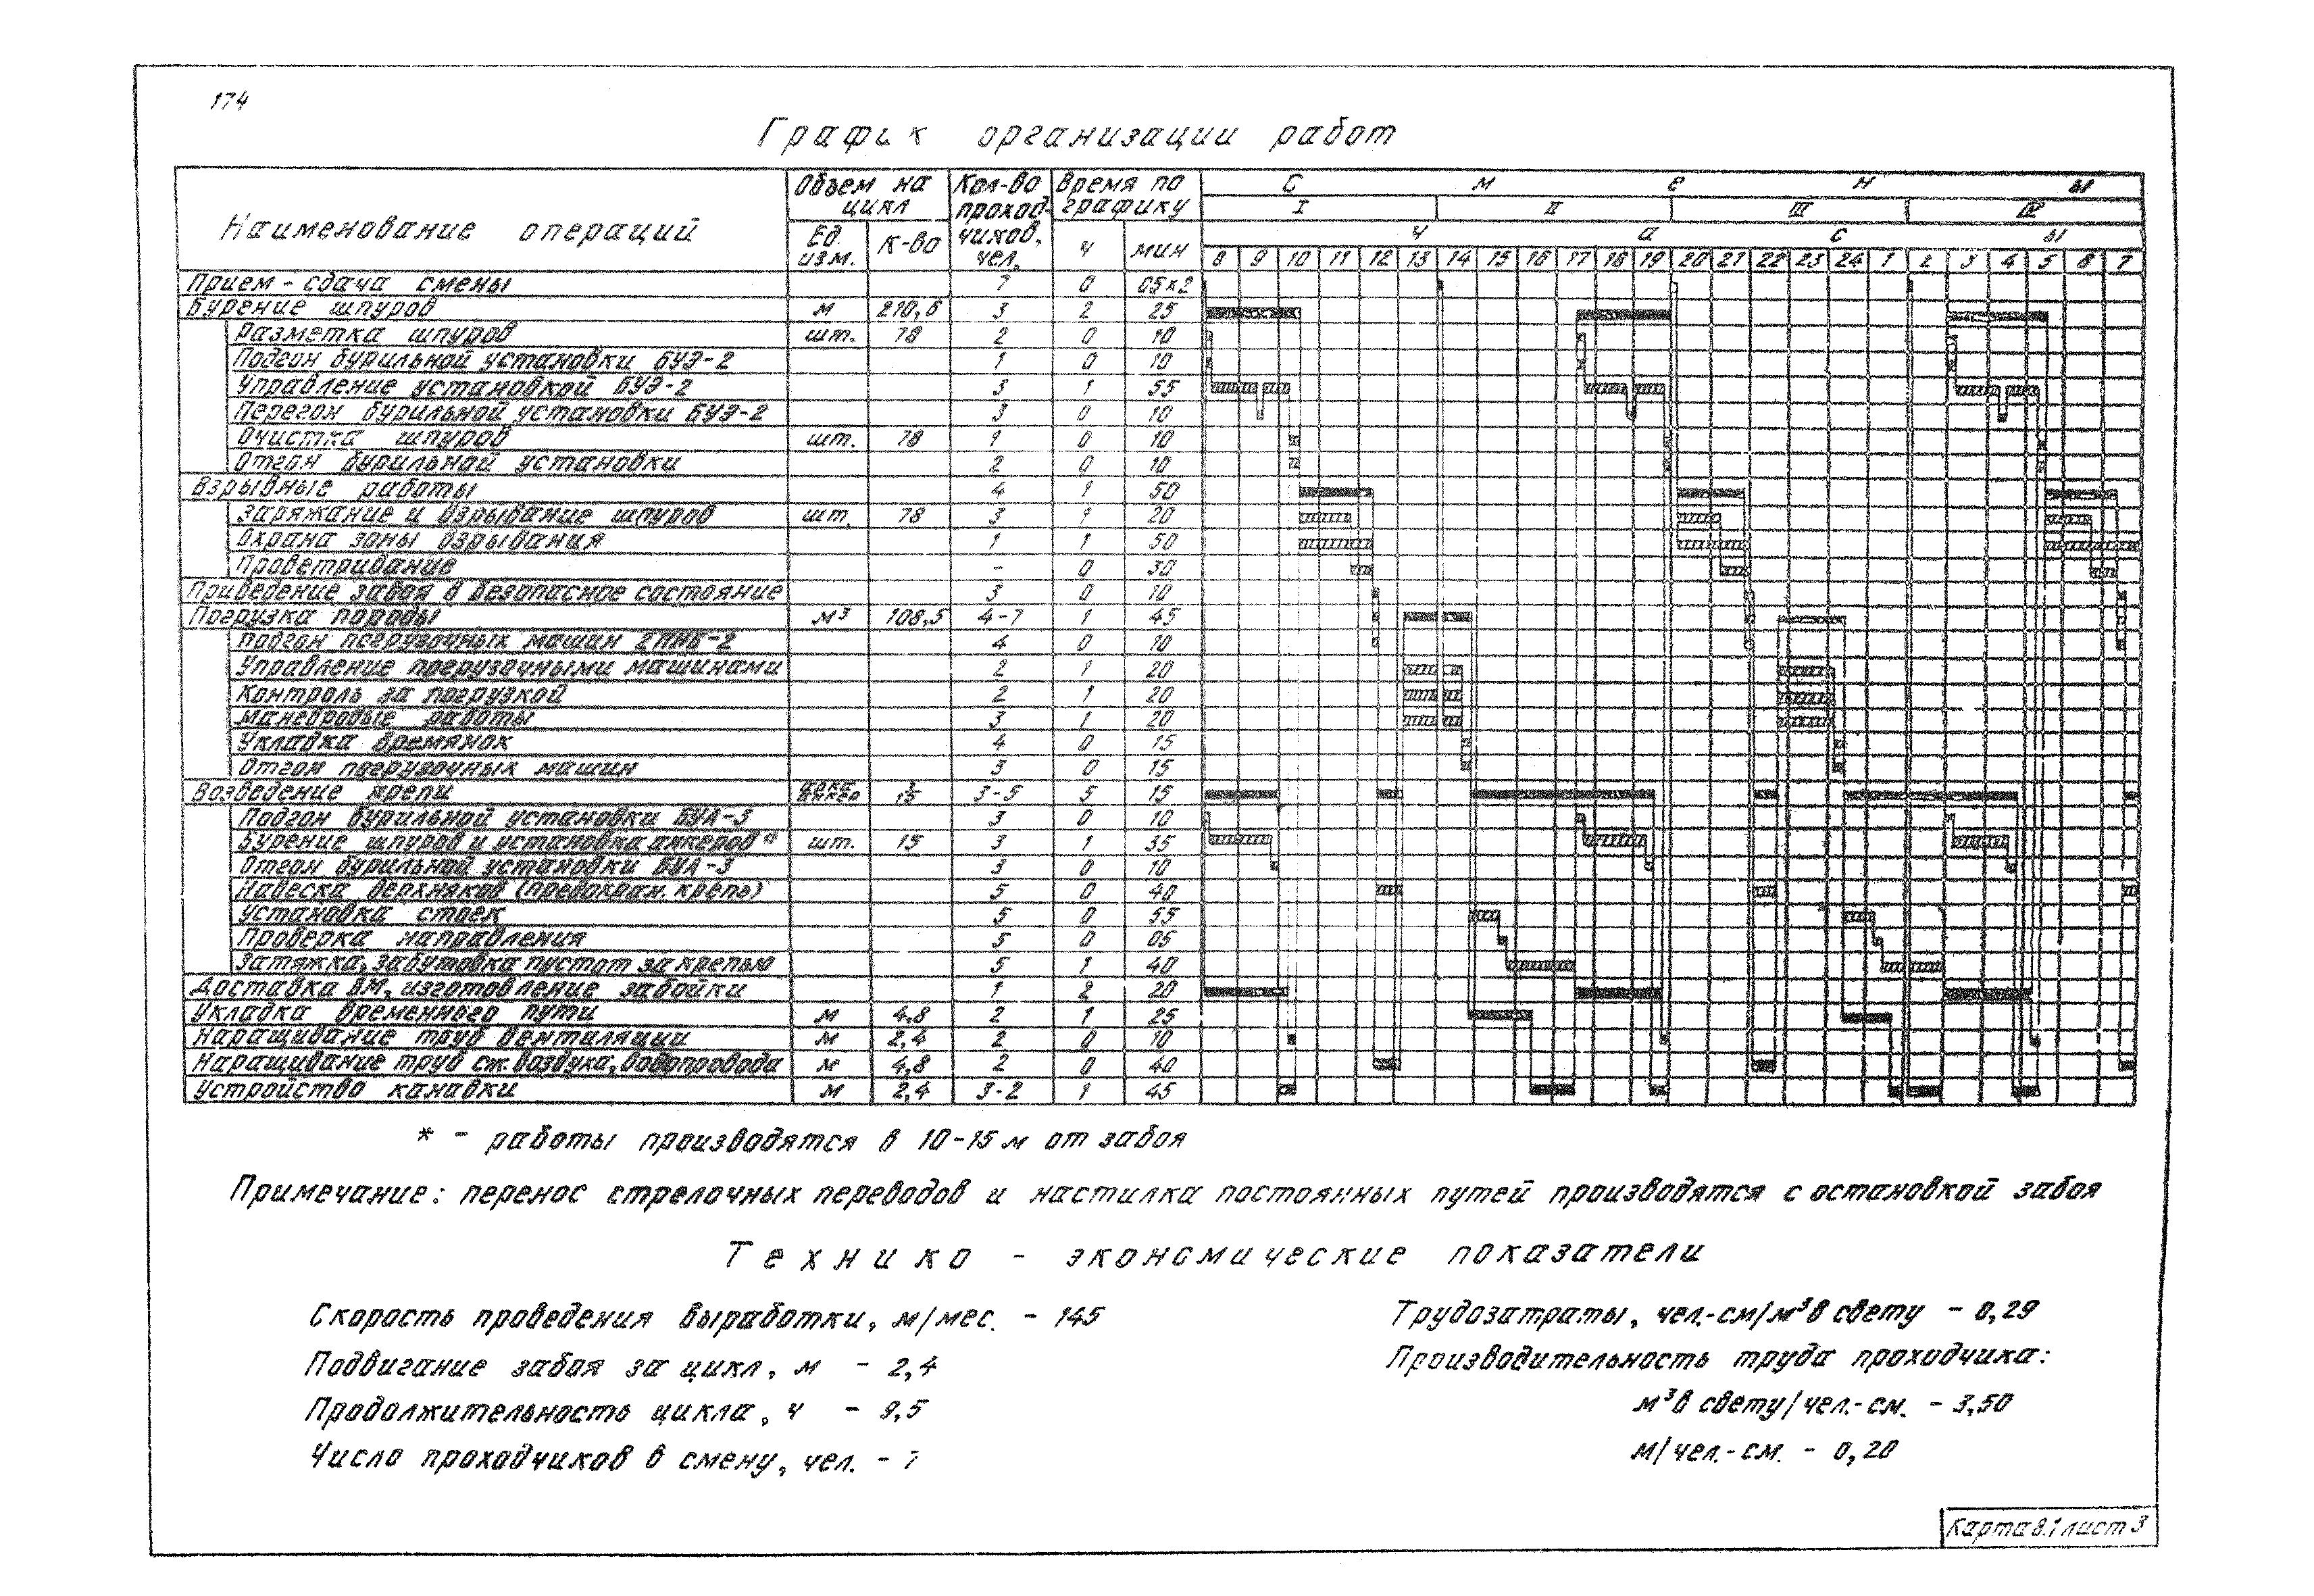 174
График организации работ
Наименование операций | Объем на цикл | Кол-во проходчиков, чел. | Время по графику | С м е н ы
Ед. изм. | К-во | ч | мин | I II III IV
Ч а с ы
8 9 10 11 12 13 14 15 16 17 18 19 20 21 22 23 24 1 2 3 4 5 6 7
Прием-сдача смены 7 0 05×2
Бурение шпуров м 210,6 3 2 25
Разметка шпуров шт. 78 2 0 10
Подгон бурильной установки БУЭ-2 1 0 10
Управление установкой БУЭ-2 3 1 55
Перегон бурильной установки БУЭ-2 3 0 10
Очистка шпуров шт. 78 1 0 10
Отгон бурильной установки 2 0 10
Взрывные работы 4 1 50
Заряжание и взрывание шпуров шт. 78 3 1 20
Охрана зоны взрывания 1 1 50
Проветривание - 0 30
Приведение забоя в безопасное состояние 3 0 10
Погрузка породы м³ 108,5 4-7 1 45
Подгон погрузочных машин 2ПНБ-2 4 0 10
Управление погрузочными машинами 2 1 20
Контроль за погрузкой 2 1 20
Маневровые работы 3 1 20
Укладка времянок 4 0 15
Отгон погрузочных машин 3 0 15
Возведение крепи 3-5 5 15
Подгон бурильной установки БУА-3 3 0 10
Бурение шпуров и установка анкеров* шт. 15 3 1 35
Отгон бурильной установки БУА-3 3 0 10
Навеска верхняков (предохран. крепь) 5 0 40
Установка стоек 5 0 55
Проверка направления 5 0 05
Затяжка, забутовка пустот за крепью 5 1 40
Доставка ВМ, изготовление забойки 1 2 20
Укладка временного пути м 4,8 2 1 25
Наращивание труб вентиляции м 2,4 2 0 10
Наращивание труб сж. воздуха, водопровода м 4,8 2 0 40
Устройство канавки м 2,4 3-2 1 45
* - работы производятся в 10-15 м от забоя
Примечание: перенос стрелочных переводов и настилка постоянных путей производятся с остановкой забоя
Технико - экономические показатели
Скорость проведения выработки, м/мес. - 145
Подвигание забоя за цикл, м - 2,4
Продолжительность цикла, ч - 9,5
Число проходчиков в смену, чел. - 7
Трудозатраты, чел.-см/м³ в свету - 0,29
Производительность труда проходчика:
м³ в свету/чел.-см. - 3,50
м/чел.-см. - 0,20
Карта 8.1 лист 3